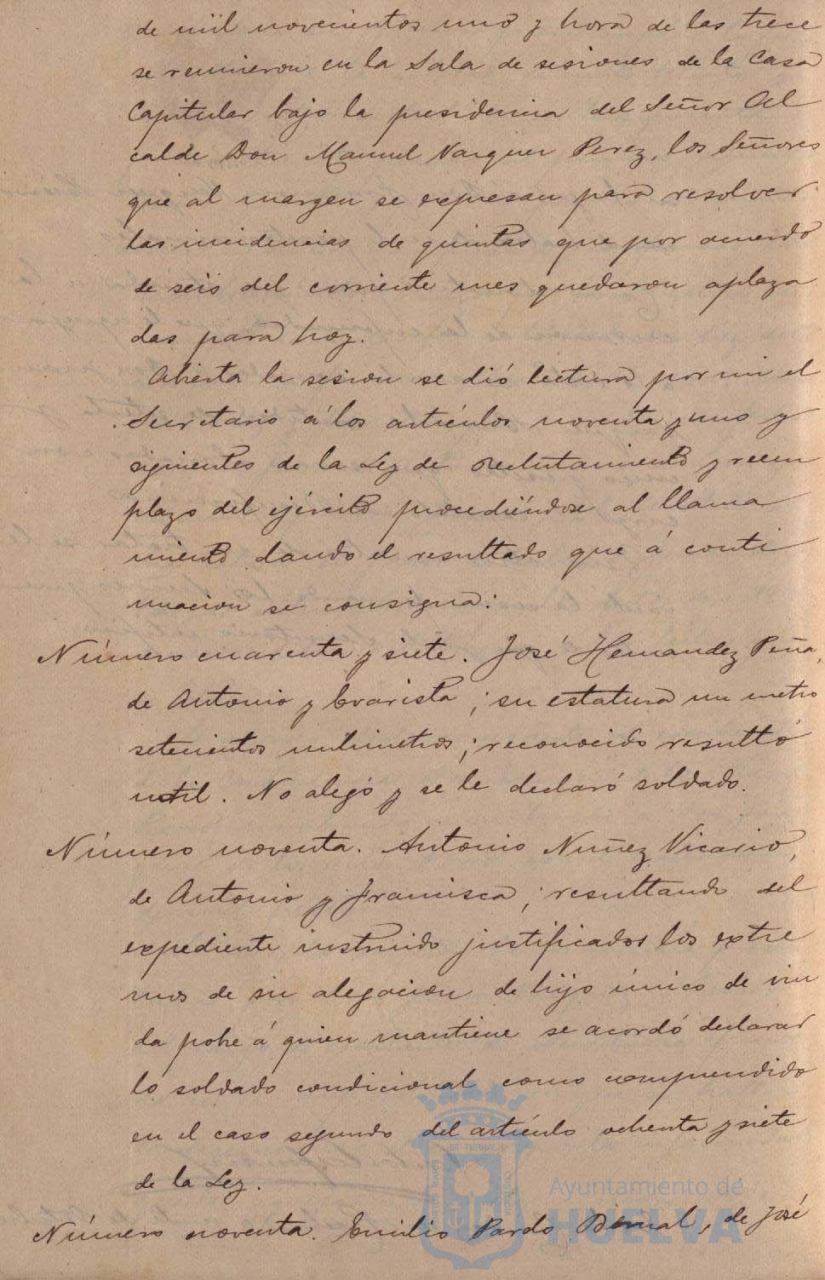 de mil novecientos uno y hora de las trece
se reunieron en la Sala de sesiones de la Casa
Capitular bajo la presidencia del Señor Al
calde Don Manuel Vazquez Perez, los Señores
que al margen se expresan para resolver
las incidencias de quintas que por acuerdo
de seis del corriente mes quedaron aplaza
das para hoy.
Abierta la sesion se dió lectura por mi el
Secretario á los artículos noventa y uno y
siguientes de la Ley de Reclutamiento y reem
plazo del ejército procediéndose al llama
miento dando el resultado que á conti
nuacion se consigna:
Número cuarenta y siete. José Hernandez Peña,
de Antonio y Evarista; su estatura un metro
setecientos milimetros; reconocido resultó
util. No alegó y se le declaró soldado.
Número noventa. Antonio Nuñez Vicario,
de Antonio y Francisca; resultando del
expediente instruido justificados los extre
mos de su alegacion de hijo único de viu
da pobre á quien mantiene se acordó declarar
lo soldado condicional como comprendido
en el caso segundo del artículo ochenta y siete
de la Ley.
Número noventa. Emilio Pardo Bernal, de José
Ayuntamiento de
HUELVA